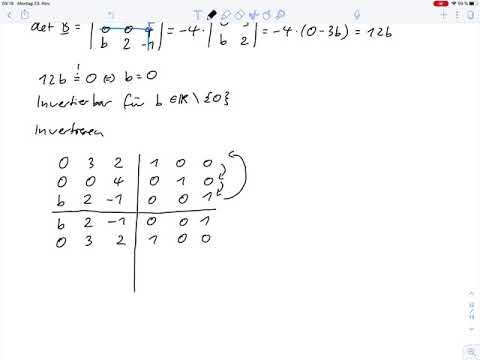 09:18 Montag 23. Nov.
99 %
det B = | 0 0 4 | = -4 · | 0 3 | = -4 · (0-3b) = 12b
| b 2 -1 | | b 2 |
12b != 0 ⇔ b = 0
Invertierbar für b ∈ ℝ \ {0}
Invertieren
0 3 2 | 1 0 0
0 0 4 | 0 1 0
b 2 -1 | 0 0 1
b 2 -1 | 0 0 1
0 3 2 | 1 0 0